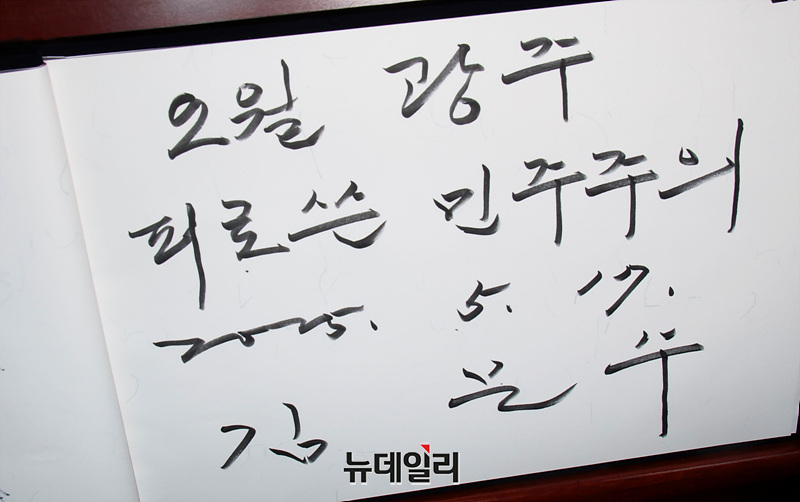 오월 광주
피로쓴 민주주의
2025. 5. 17.
김 문 수
뉴데일리